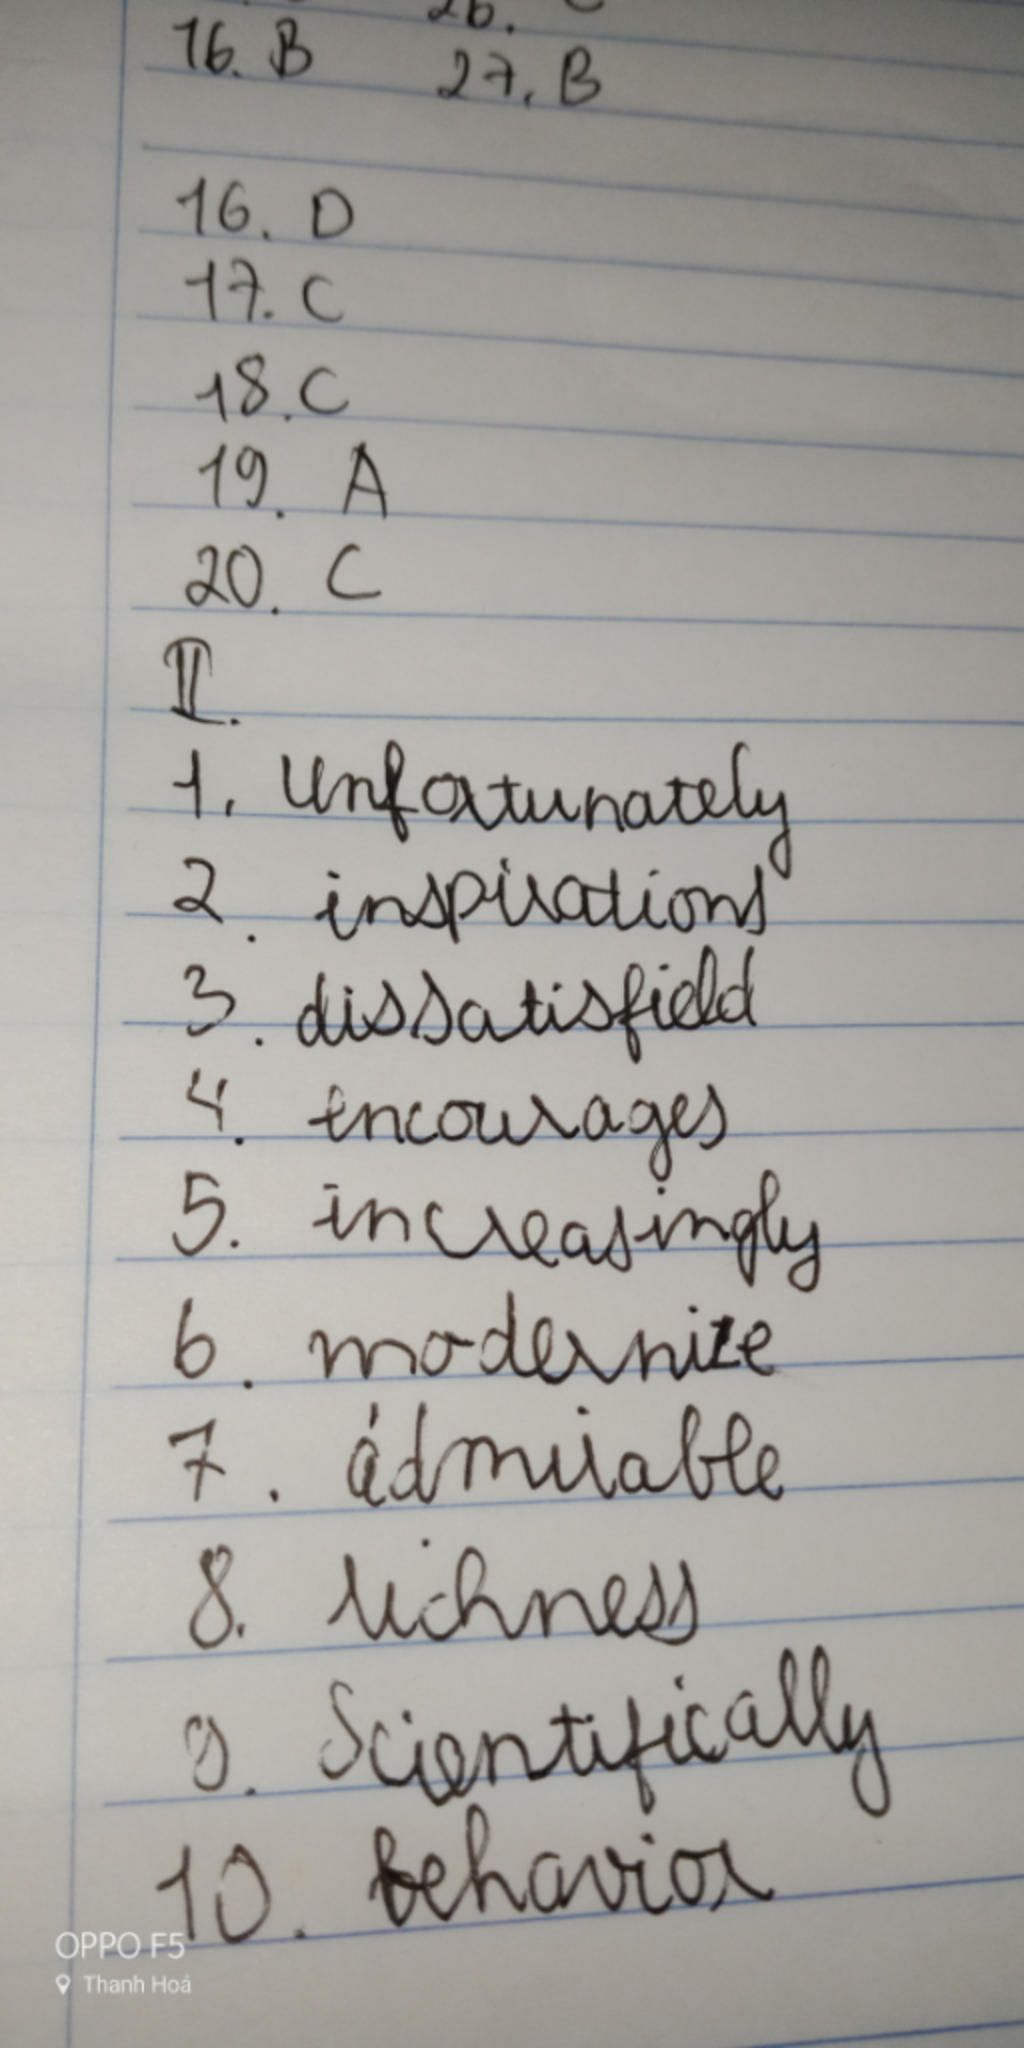 26. C
16. B 27. B
16. D
17. C
18. C
19. A
20. C
II.
1. Unfortunately
2. inspirations
3. dissatisfield
4. encourages
5. increasingly
6. modernize
7. ádmirable
8. richness
9. Scientifically
10. behavior
OPPO F5
Thanh Hoá